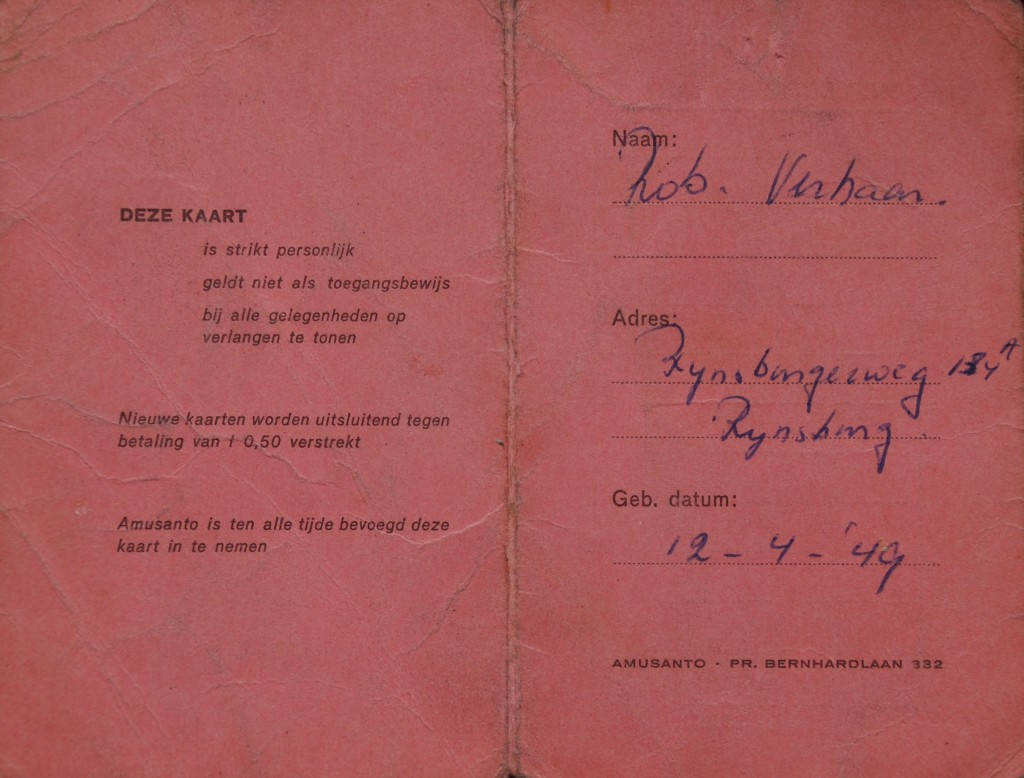 DEZE KAART
is strikt personlijk
geldt niet als toegangsbewijs
bij alle gelegenheden op
verlangen te tonen
Nieuwe kaarten worden uitsluitend tegen
betaling van f 0,50 verstrekt
Amusanto is ten alle tijde bevoegd deze
kaart in te nemen
Naam:
Rob. Verhaar.
Adres:
Rynsburgerweg 134A
Rynsburg.
Geb. datum:
12 - 4 - '49
AMUSANTO - PR. BERNHARDLAAN 332